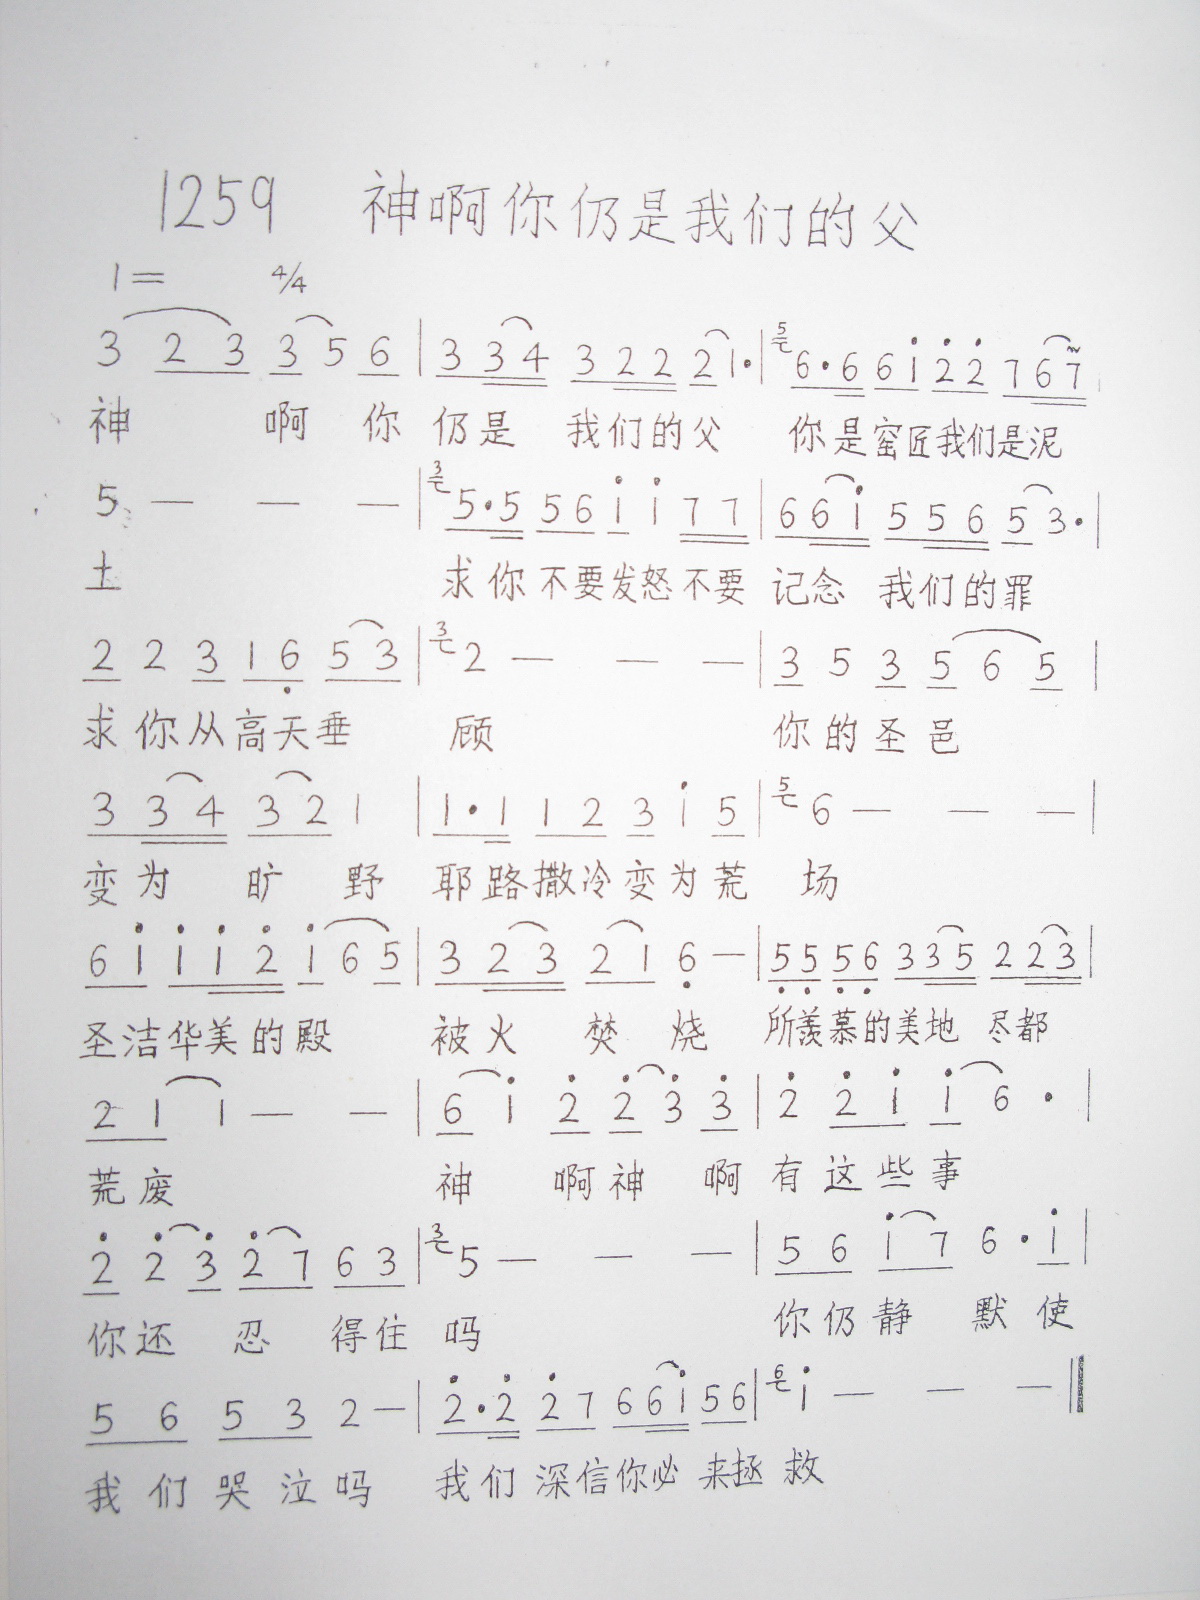 1259 神啊你仍是我们的父
1= 4/4
3 2 3 3 5 6 | 3 3 4 3 2 2 2 1· | 5 6·6 6 i 2̇ 2̇ 7 6 7 |
神 啊 你 仍是 我们的父 你是窑匠我们是泥
5 — — — | 3 5·5 5 6 i i 7 7 | 6 6 i 5 5 6 5 3· |
土 求你不要发怒不要 记念 我们的罪
2 2 3 1 6̣ 5 3 | 3 2 — — — | 3 5 3 5 6 5 |
求你从高天垂 顾 你的圣邑
3 3 4 3 2 1 | 1·1 1 2 3 i 5 | 5 6 — — — |
变为 旷 野 耶路撒冷变为荒 场
6 i i i 2̇ i 6 5 | 3 2 3 2 1 6̣ — | 5̣ 5̣ 5̣ 6̣ 3 3 5 2 2 3 |
圣洁华美的殿 被火 焚 烧 所羡慕的美地 尽都
2 1 1 — — | 6 i 2̇ 2̇ 3̇ 3̇ | 2̇ 2̇ i i 6 · |
荒废 神 啊神 啊 有这些事
2̇ 2̇ 3̇ 2̇ 7 6 3 | 3 5 — — — | 5 6 i 7 6 · i |
你还 忍 得住 吗 你仍静 默 使
5 6 5 3 2 — | 2̇·2̇ 2̇ 7 6 6 i 5 6 | 6 i — — —
我们哭泣吗 我们深信你必来拯 救